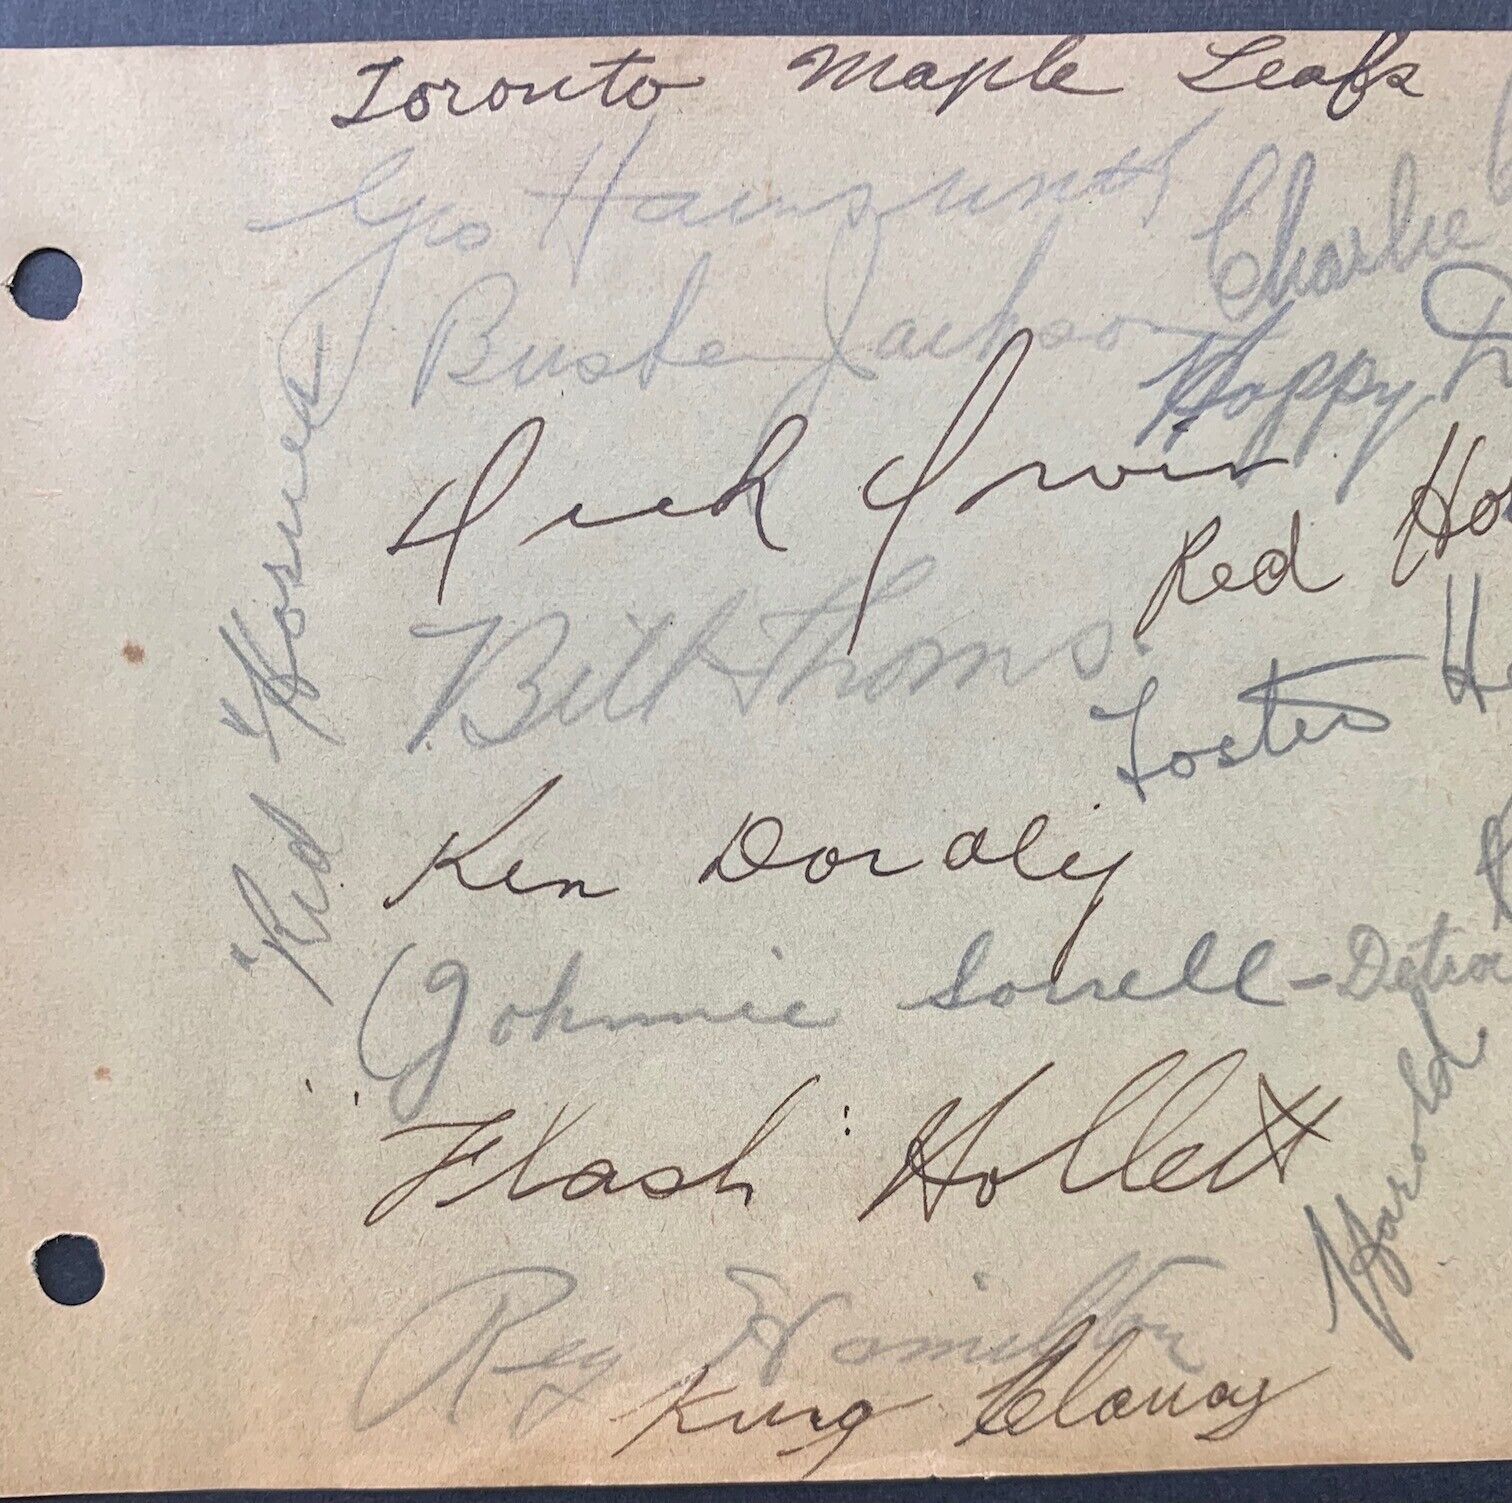 Toronto Maple Leafs
Geo Hainsworth
Charlie
Buster Jackson
Happy D
Dick Irvin
Red Ho
Bill Thoms.
Foster He
Ken Doraly
Johnnie Sorrell - Detroi
"Flash" Hollett
Harold
Reg Hamilton
King Clancy
"Red" Horner